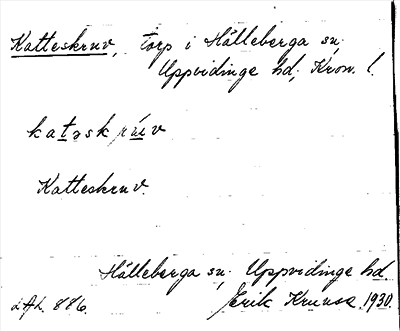 Katteskruv, torp i Hälleberga sn;
Uppvidinge hd, Kron. l.
katəskrúv
Katteskruv.
Hälleberga sn, Uppvidinge hd.
LAL. 886. Erik Kruuse 1930.